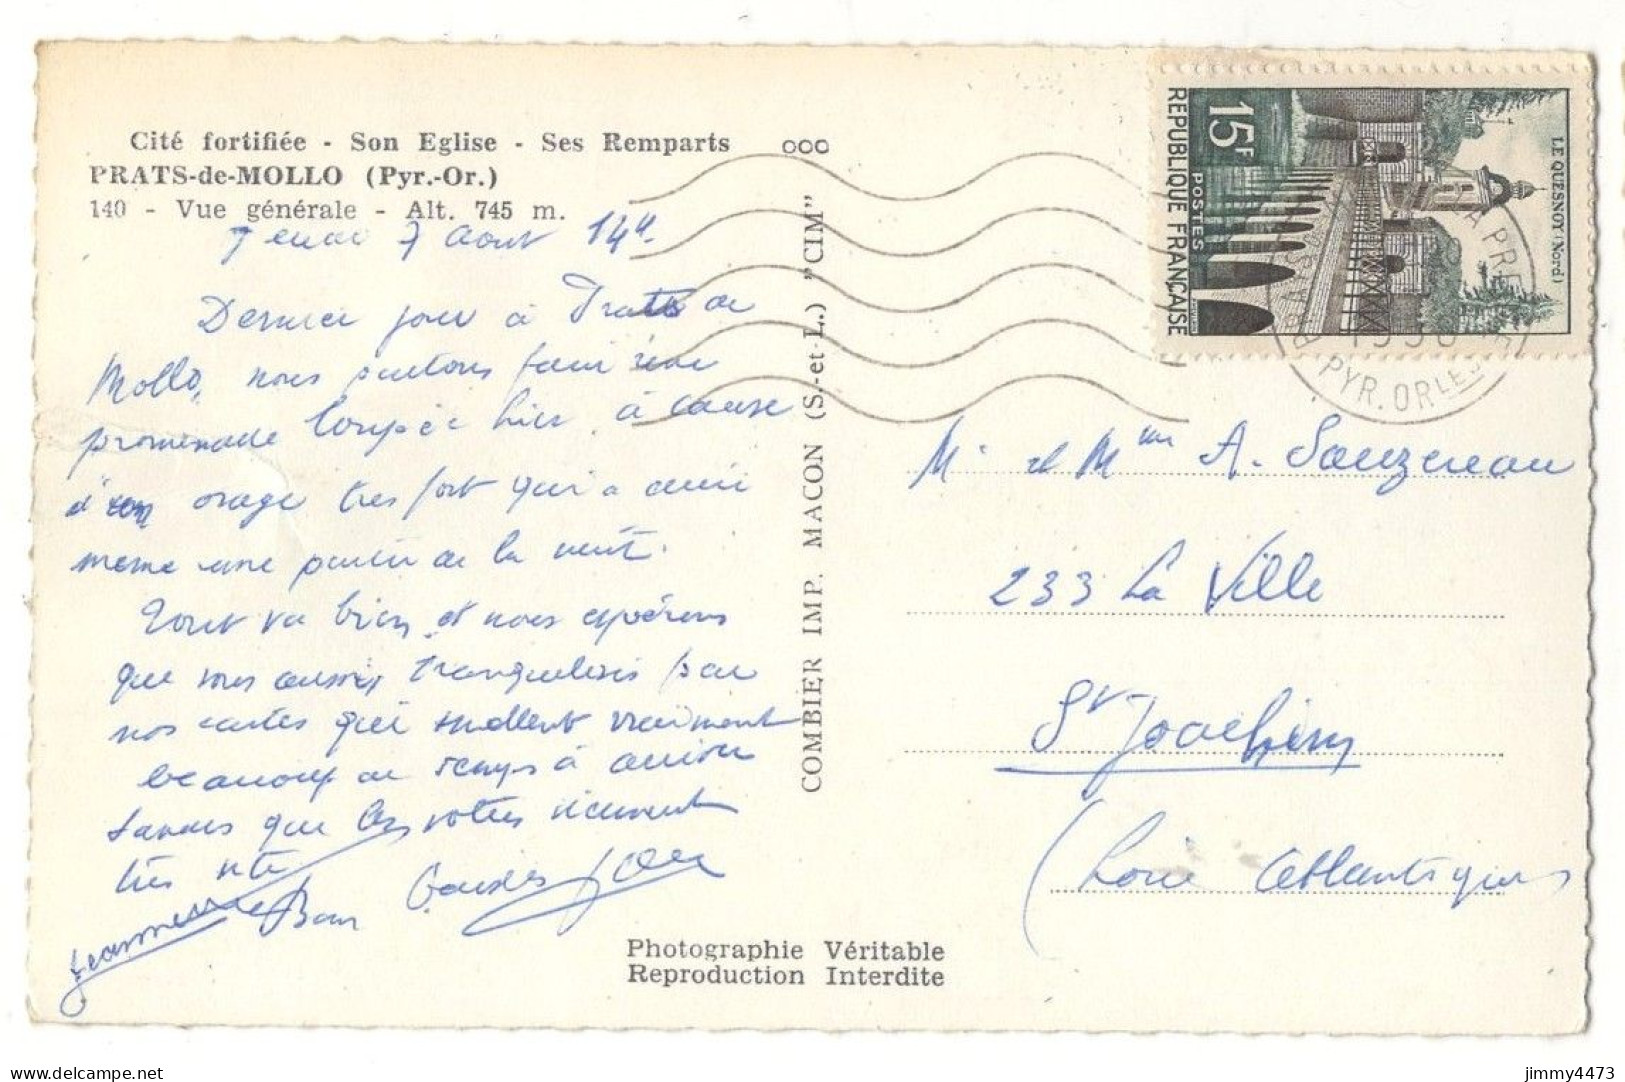 Cité fortifiée - Son Eglise - Ses Remparts
PRATS-de-MOLLO (Pyr.-Or.)
140 - Vue générale - Alt. 745 m.
Jeudi 7 Aout 14h.
Dernier jour à Prats de
Mollo, nous partons faire une
promenade loupée hier, à cause
d'un orage très fort qui a duré
même une partie de la nuit.
Tout va bien et nous espérons
que vous aussi, tranquilisés par
nos cartes qui mettent vraiment
beaucoup de temps à arriver
tandis que les vôtres viennent
très vite
Bons Baisers
Jeannette
COMBIER IMP. MACON (S.-et-L.) "CIM"
Photographie Véritable
Reproduction Interdite
15F
POSTES
REPUBLIQUE FRANÇAISE
LE QUESNOY (Nord)
PYR. ORLES
Mr et Mme A. Sauzereau
233 La Ville
St Joachim
(Loire Atlantique
jimmy4473